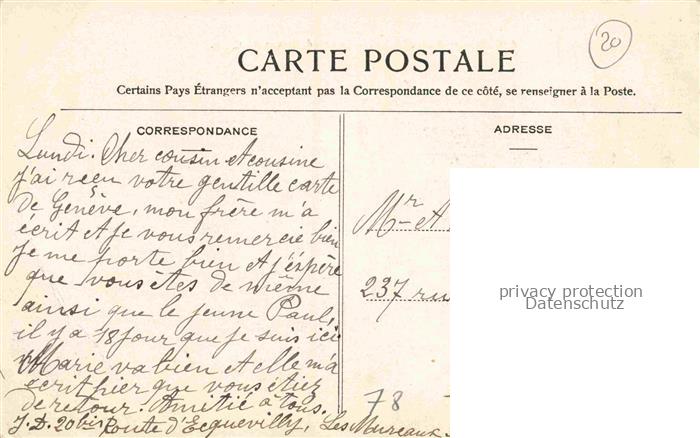 20
CARTE POSTALE
Certains Pays Étrangers n'acceptant pas la Correspondance de ce côté, se renseigner à la Poste.
CORRESPONDANCE
Lundi. Cher cousin et cousine
j'ai reçu votre gentille carte
de Genève, mon frère m'a
écrit et je vous remercie bien
je me porte bien et j'éspère
que vous êtes de même
ainsi que le jeune Paul,
il y a 18 jour que je suis ici
Marie va bien et elle m'a
écrit hier que vous étiez
de retour. Amitié à tous.
J. D. 20 bis Route d'Ecquevilly, Les Mureaux.
ADRESSE
Mr et
237 rue
privacy protection
Datenschutz
78